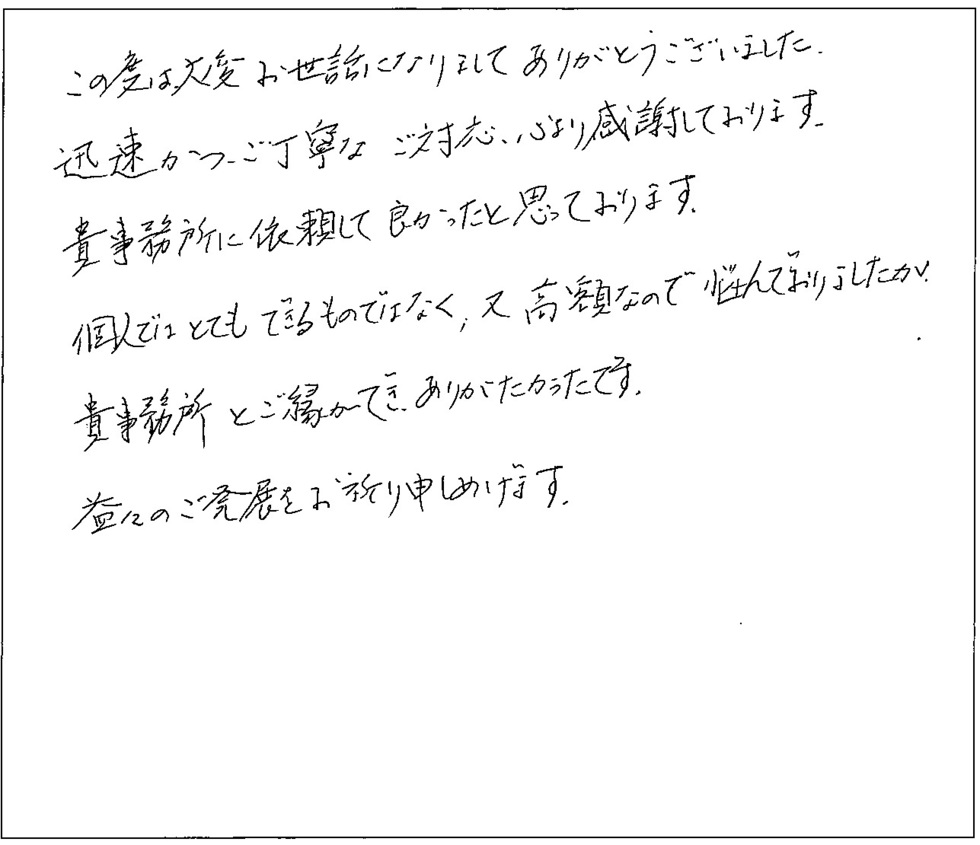 この度は大変お世話になりましてありがとうございました.
迅速かつご丁寧なご対応、心より感謝しております.
貴事務所に依頼して良かったと思っております.
個人ではとてもできるものではなく, 又高額なので悩んでおりましたが.
貴事務所とご縁ができ、ありがたかったです.
益々のご発展をお祈り申しあげます.